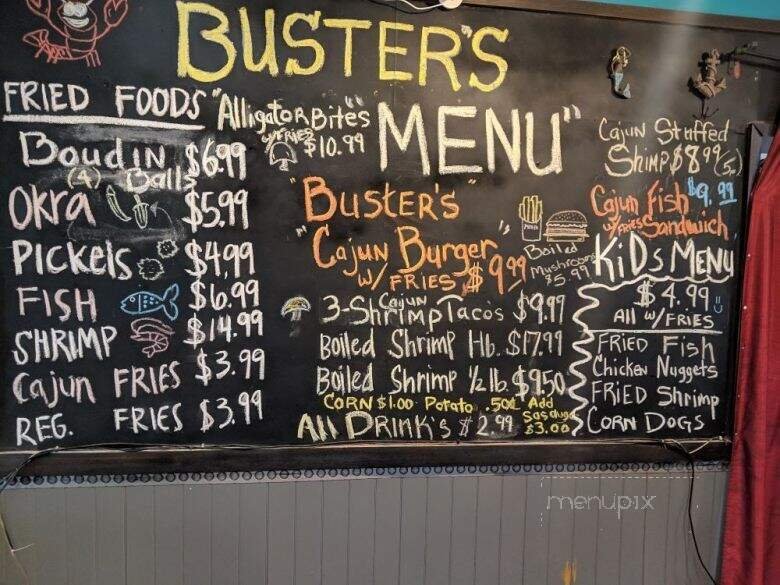 BUSTER'S
MENU"
FRIED FOODS
Boudin $6.99
(4) Balls
Okra $5.99
Pickels $4.99
FISH $6.99
SHRIMP $14.99
Cajun FRIES $3.99
REG. FRIES $3.99
"Alligator Bites"
w/FRIES $10.99
"Buster's"
"Cajun Burger
w/ FRIES $9.99
Boiled
Mushrooms
$5.99
3-Shrimp Tacos $9.99
Cajun
Boiled Shrimp 1lb. $17.99
Boiled Shrimp 1/2 lb. $9.50
CORN $1.00 Potato .50¢ Add
Sasauge
$3.00
All Drink's $2.99
Cajun Stuffed
Shimp $8.99 (5)
Cajun Fish $9.99
w/FRIES Sandwich
KiDs MENU
$4.99
All w/FRIES
FRIED Fish
Chicken Nuggets
FRIED Shrimp
CORN DOGS
menupix